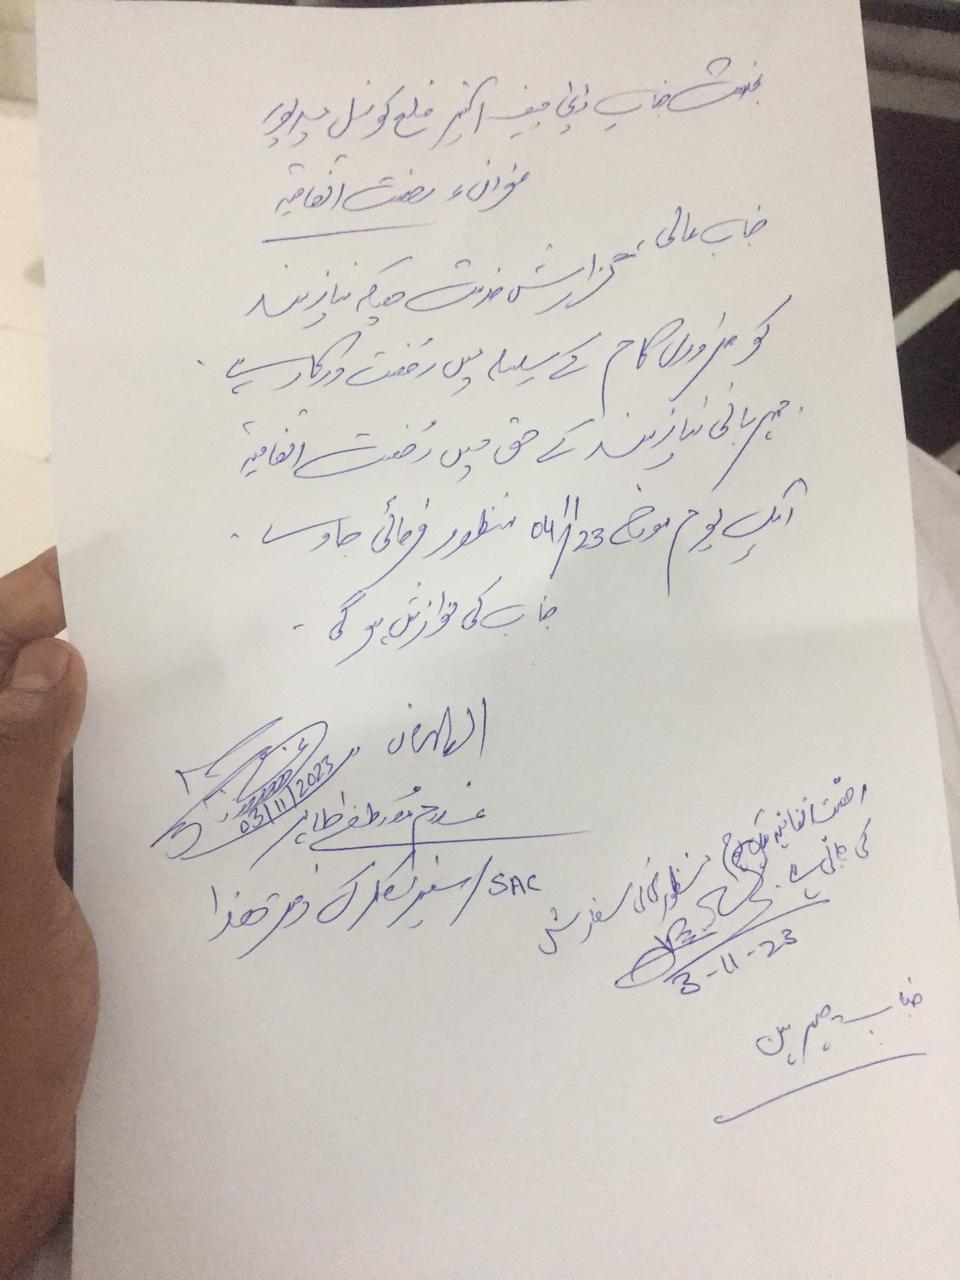 بخدمت جناب ڈپٹی چیف آفیسر ضلع کونسل میرپور
عنوان؛ رخصت اتفاقیہ
جناب عالی،
گزارش خدمت ہیکہ نیازمند
کو ضروری کام کے سلسلہ میں رُخصت درکار ہے۔
مہربانی نیازمند کے حق میں رُخصت اتفاقیہ
ایک یوم مورخہ 04/11/23 منظور فرمائی جاوے۔
جناب کی نوازش ہو گی۔
العارض
03/11/2023
طاہر
SAC/سینئر کلرک دفتر ھذا
رخصت اتفاقیہ ایک یوم منظور فرمانے کی سفارش
کی جاتی ہے۔
3-11-23
جناب چیئرمین